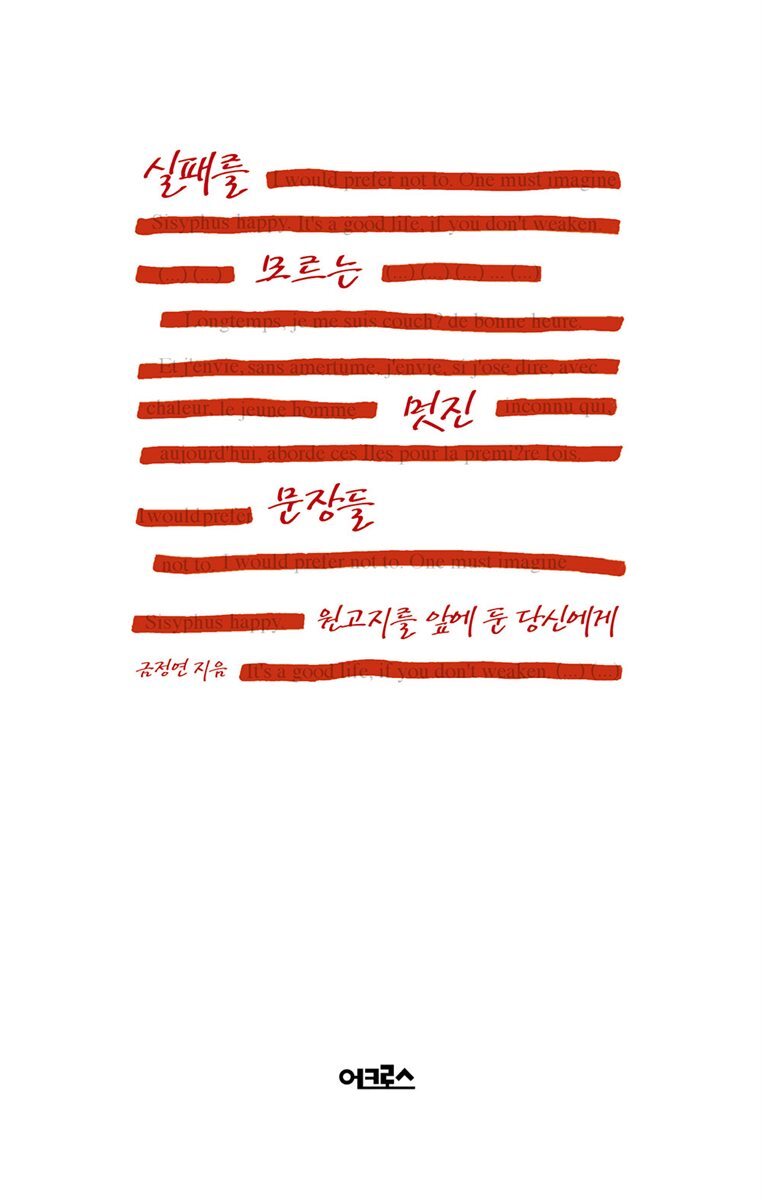 실패를 I would prefer not to. One must imagine
Sisyphus happy. It's a good life, if you don't weaken.
(...) (...) 모르는 (...) (...) (...) ... (...)
Longtemps, je me suis couch? de bonne heure.
Et j'envie, sans amertume, j'envie, si j'ose dire, avec
chaleur, le jeune homme 멋진 inconnu qui,
aujourd'hui, aborde ces Iles pour la premi?re fois
I would prefer 문장들
not to. I would prefer not to. One must imagine
Sisyphus happy. 원고지를 앞에 둔 당신에게
금정연 지음 It's a good life, if you don't weaken. (...) (...)
어크로스